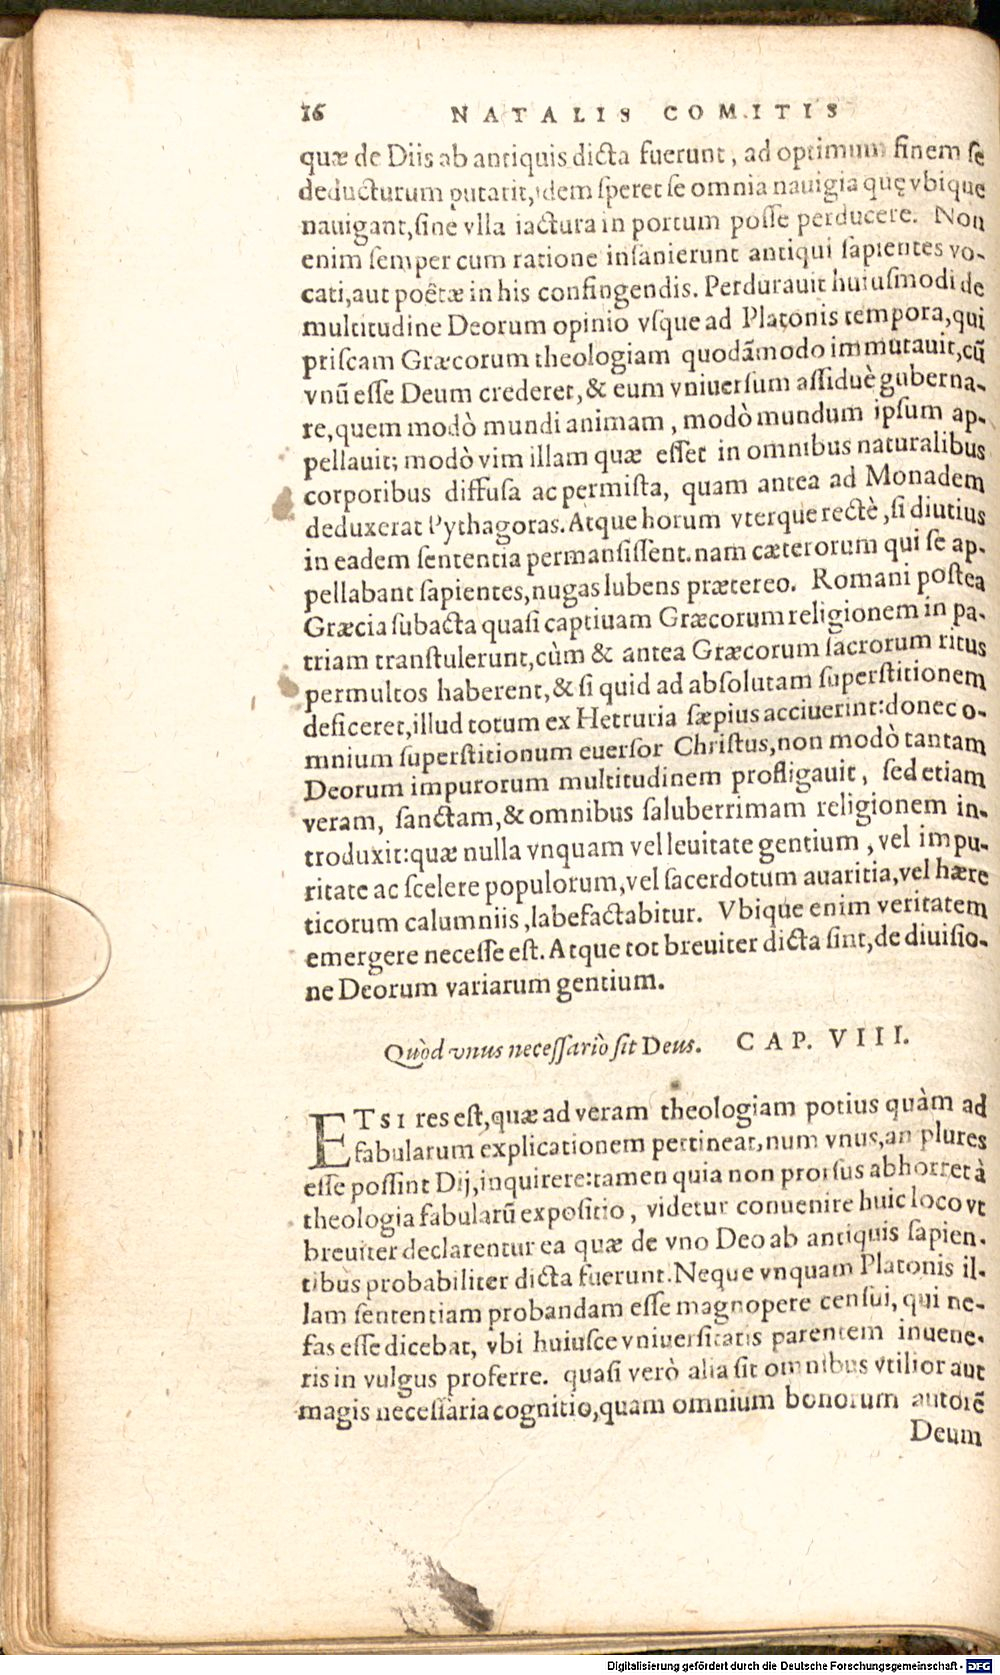 16 NATALIS COMITIS
quæ de Diis ab antiquis dicta fuerunt, ad optimum finem ſe
deducturum putarit, idem ſperet ſe omnia nauigia quę vbique
nauigant, ſine vlla iactura in portum poſſe perducere. Non
enim ſemper cum ratione inſanierunt antiqui ſapientes vo-
cati, aut poëtæ in his confingendis. Perdurauit huiuſmodi de
multitudine Deorum opinio vſque ad Platonis tempora, qui
priſcam Græcorum theologiam quodãmodo immutauit, cũ
vnũ eſſe Deum crederet, & eum vniuerſum aſſiduè guberna-
re, quem modò mundi animam, modò mundum ipſum ap-
pellauit; modò vim illam quæ eſſet in omnibus naturalibus
corporibus diffuſa ac permiſta, quam antea ad Monadem
deduxerat Pythagoras. Atque horum vterque rectè, ſi diutius
in eadem ſententia permanſiſſent. nam cæterorum qui ſe ap-
pellabant ſapientes, nugas lubens prætereo. Romani poſtea
Græcia ſubacta quaſi captiuam Græcorum religionem in pa-
triam tranſtulerunt, cùm & antea Græcorum ſacrorum ritus
permultos haberent, & ſi quid ad abſolutam ſuperſtitionem
deficeret, illud totum ex Hetruria ſæpius acciuerint: donec o-
mnium ſuperſtitionum euerſor Chriſtus, non modò tantam
Deorum impurorum multitudinem profligauit, ſed etiam
veram, ſanctam, & omnibus ſaluberrimam religionem in-
troduxit: quæ nulla vnquam vel leuitate gentium, vel impu-
ritate ac ſcelere populorum, vel ſacerdotum auaritia, vel hære
ticorum calumniis, labefactabitur. Vbique enim veritatem
emergere neceſſe eſt. Atque tot breuiter dicta ſint, de diuiſio-
ne Deorum variarum gentium.
Quòd vnus neceſſariò ſit Deus. CAP. VIII.
ETSI res eſt, quæ ad veram theologiam potius quàm ad
fabularum explicationem pertineat, num vnus, an plures
eſſe poſſint Dij, inquirere: tamen quia non prorſus abhorret à
theologia fabularũ expoſitio, videtur conuenire huic loco vt
breuiter declarentur ea quæ de vno Deo ab antiquis ſapien-
tibus probabiliter dicta fuerunt. Neque vnquam Platonis il-
lam ſententiam probandam eſſe magnopere cenſui, qui ne-
fas eſſe dicebat, vbi huiuſce vniuerſitatis parentem inuene-
ris in vulgus proferre. quaſi verò alia ſit omnibus vtilior aut
magis neceſſaria cognitio, quam omnium bonorum autorẽ
Deum
Digitalisierung gefördert durch die Deutsche Forschungsgemeinschaft - DFG